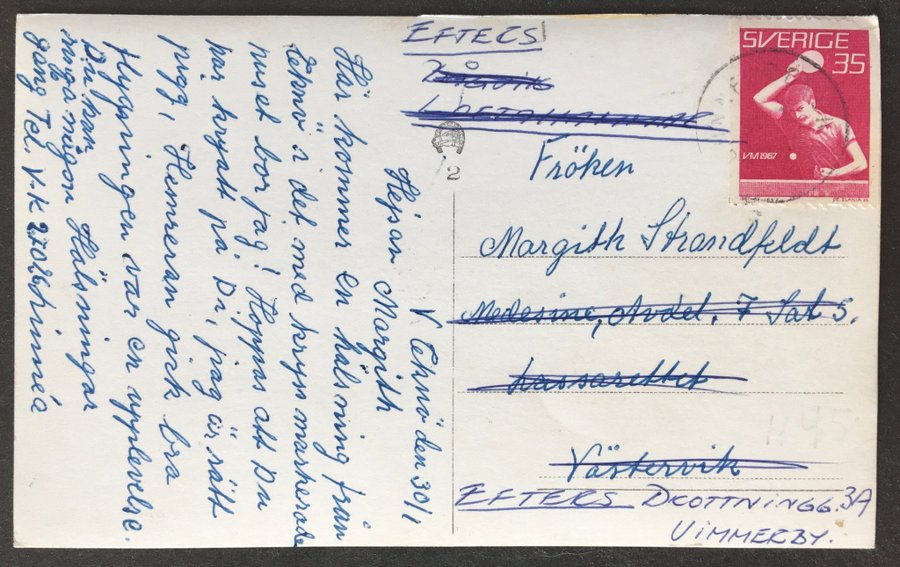 V Eknö den 30/1
Hejsan Margith
Här kommer en hälsning från
Eknö i det med kryss markerade
huset bor jag! Hoppas att Du
har kryatt på Di, jag är rätt
pigg, Hemresan gick bra
flygningen var en upplevelse.
Du kan
ringa mig Hälsningar
gång Tel. V-k 27026 Linnéa
EFTERS
LOFTAHAMMAR
Fröken
Margith Strandfeldt
Medesine, Avdel. 7 Sal 5.
Lassarettet
Västervik
EFTERS DROTTNINGG. 3A
VIMMERBY.
2
SVERIGE
35
VM 1967
H45